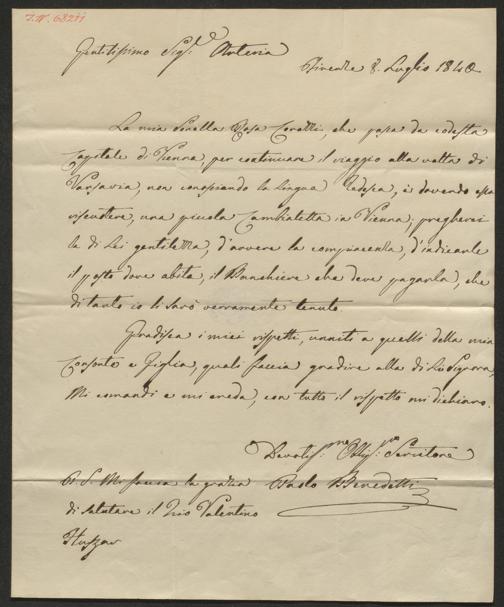 I.N. 68211
Gentilissimo Sigr. Artaria
Firenze 8. Luglio 1840
La mia Sorella Rosa Coralli, che passa da codesta
Capitale di Vienna, per continuare il viaggio alla volta di
Varsavia, non conoscendo la lingua Tedesca, è dovendo essa
riscuotere, una piccola Cambialetta in Vienna; pregherei
la di Lei gentilezza, d'avvere la compiacenza, d'indicarle
il posto dove abita, il Bannchiere che deve pagarla, che
di tanto io li sarò verramente tenuto
Gradisca i miei rispetti, unniti a quelli della mia
Consorte e Figlia, quali faccia gradire alla di Lei Signora,
Mi comandi e mi creda, con tutto il rispetto mi dichiaro.
Devotiss:mo Obblig:mo Servitore
P. S. Mi faccia la grazia Paolo Benedetti
di salutare il Zio Valentino